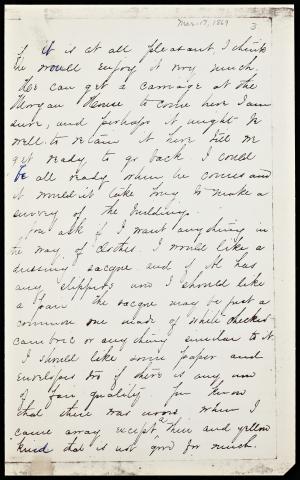 Mar. 17, 1869
3
if it is at all pleasant I think
he would enjoy it very much.
He can get a carriage at the
Morgan House to come here I am
sure, and perhaps it might be
well to retain it here till we
get ready to go back. I could
be all ready when he comes and
it would n't take long to make a
survey of the building.
You ask if I want anything in
the way of clothes. I would like a
dressing sacque and if M has
any slippers now I should like
a pair. The sacque may be just a
common one made of white checked
cambric or anything similar to it.
I should like some paper and
envelopes too if there is any now
of fair quality. You know
that there was none when I
came away except a thin and yellow
kind that is not good for much.